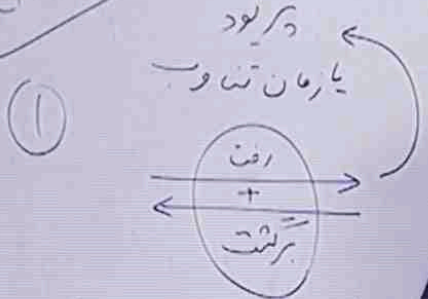 پریود
یا زمان تناوب
①
رفت
+
برگشت